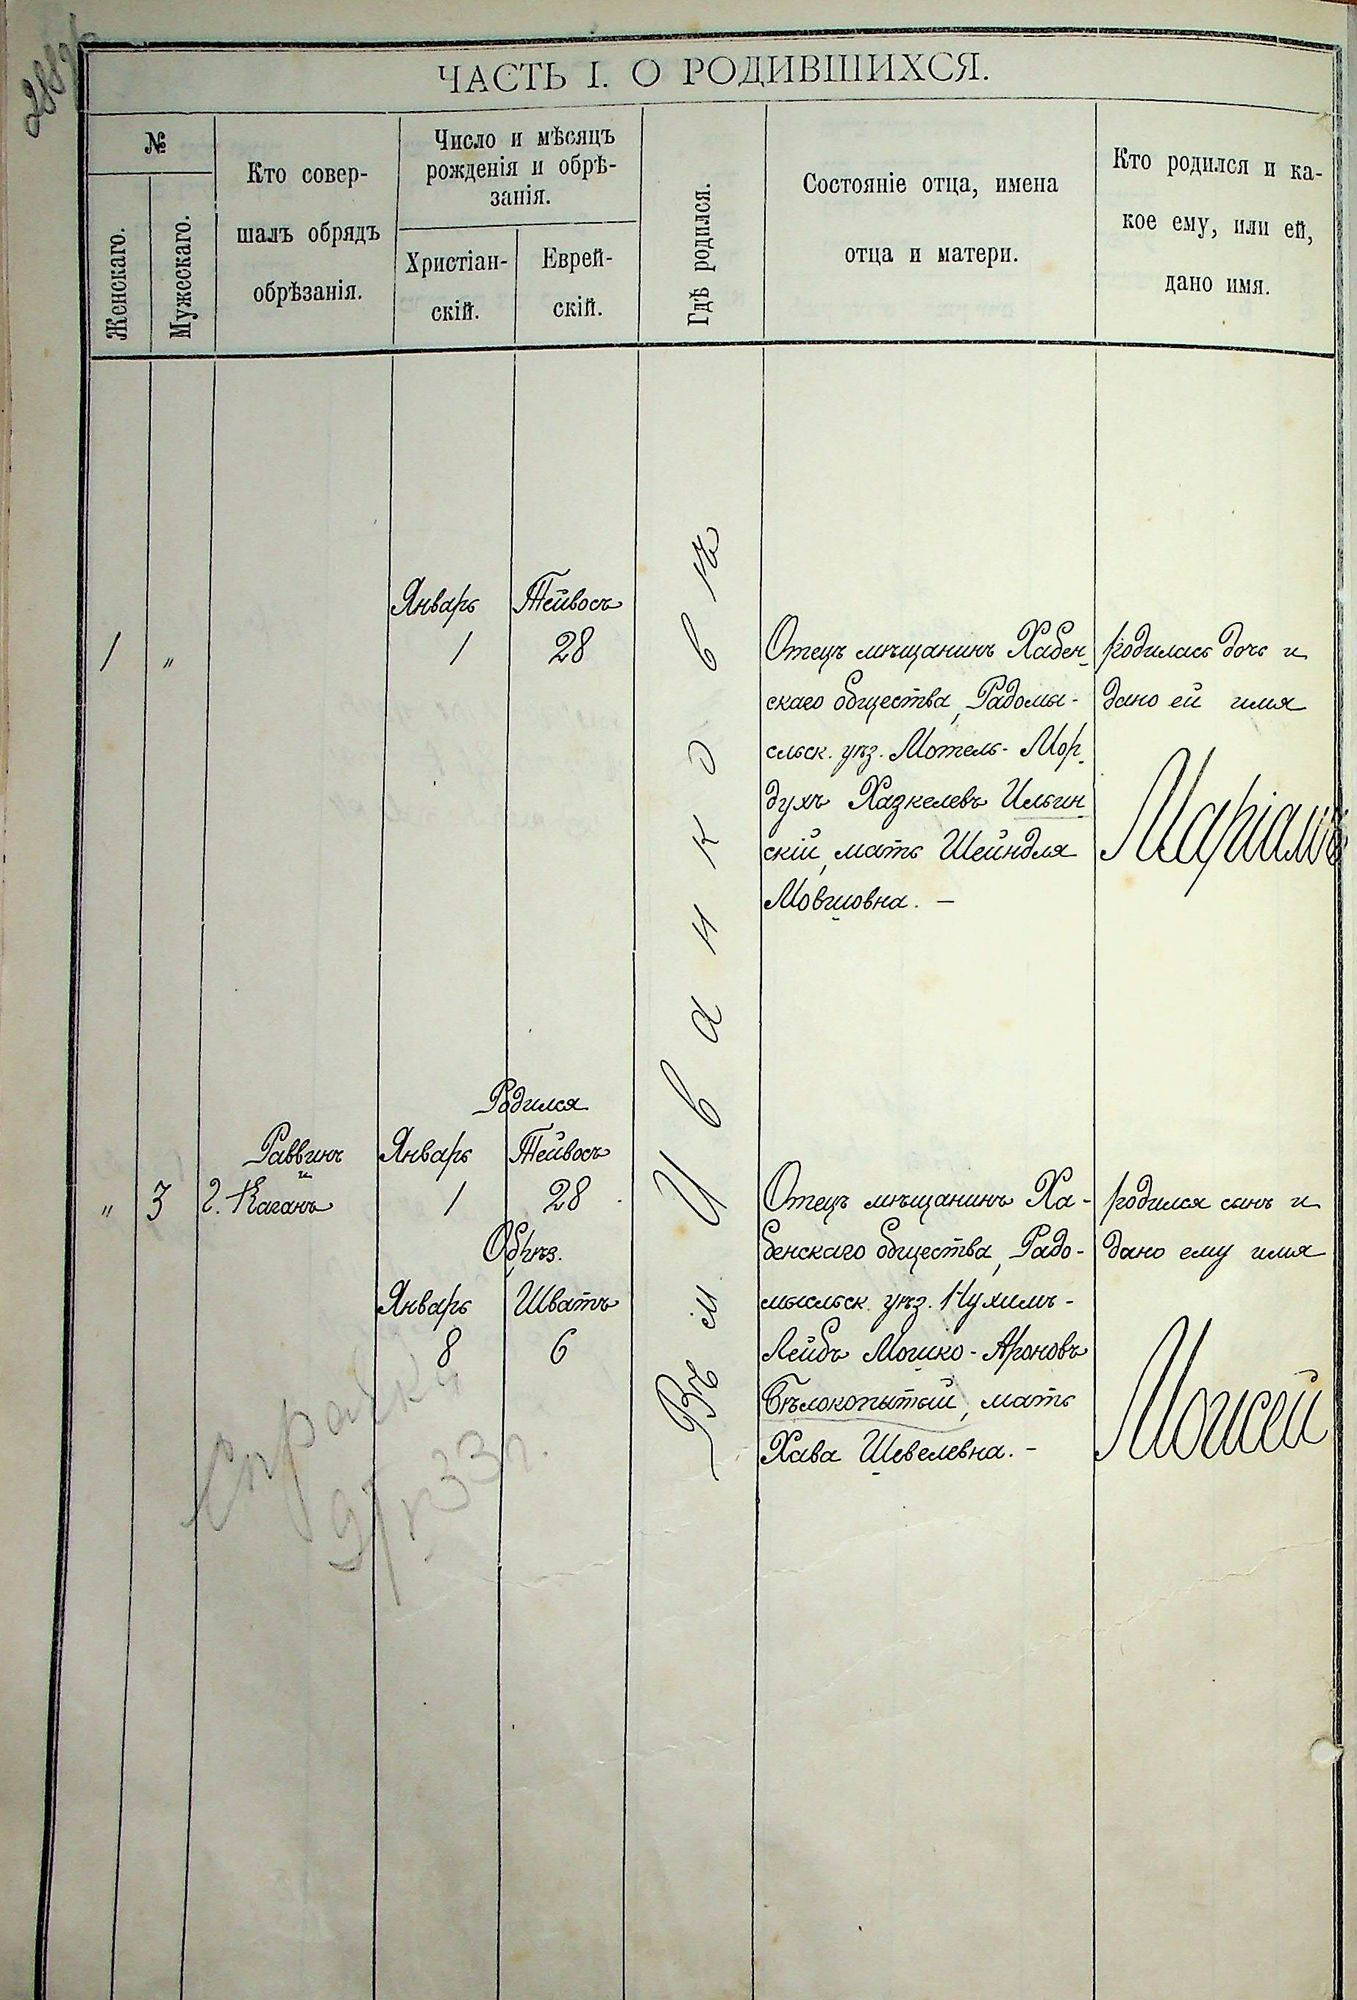 ЧАСТЬ I. О РОДИВШИХСЯ.
№
Женскаго.
Мужескаго.
Кто совер-
шалъ обрядъ
обрѣзанія.
Число и мѣсяцъ
рожденія и обрѣ-
занія.
Христіан-
скій.
Еврей-
скій.
Гдѣ родился.
Состояніе отца, имена
отца и матери.
Кто родился и ка-
кое ему, или ей,
дано имя.
Въ м. Иванковѣ
Январь Тейвосъ
1 „ 1 28
Отецъ мѣщанинъ Хабен-
скаго общества, Радомы-
сльск. уѣз. Мотель-Мор-
духъ Хазкелевъ Ильин
скій, мать Шейндля
Мовшовна. —
родилась дочь и
дано ей имя
Маріамъ
Родился
Раввинъ Январь Тейвосъ
„ 3 г. Каганъ 1 28
Обрѣз.
Январь Шватъ
8 6
Отецъ мѣщанинъ Ха-
бенскаго общества, Радо-
мысльск. уѣз. Нухимъ-
Лейбъ Мошко-Ароновъ
Бѣлокопытый, мать
Хава Шевелевна. —
родился сынъ и
дано ему имя
Мошсей
Справка
33г.